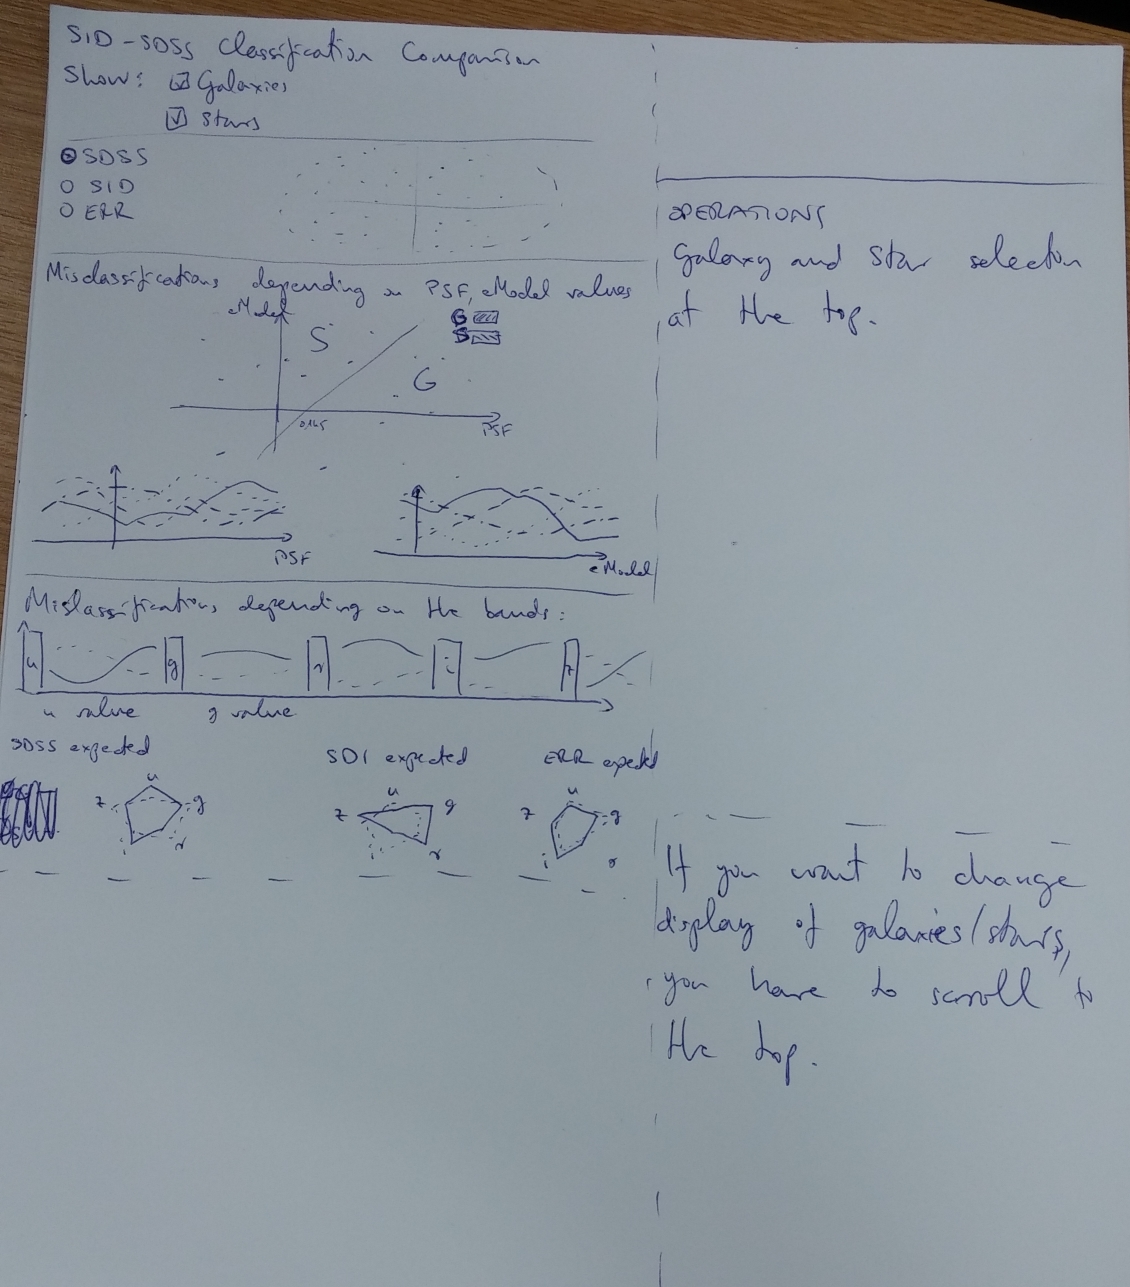 SID-SDSS Classification Comparison
Show: Galaxies
Stars
SDSS
SID
ERR
Misclassifications depending on PSF, cModel values
cModel
G
S
S
G
0,145
PSF
PSF
cModel
Misclassifications depending on the bands:
u g r i z
u value g value
SDSS expected SDI expected ERR expected
u
z g
i r
u
z g
i r
u
z g
i r
OPERATIONS
Galaxy and Star selection
at the top.
If you want to change
display of galaxies/stars,
you have to scroll to
the top.